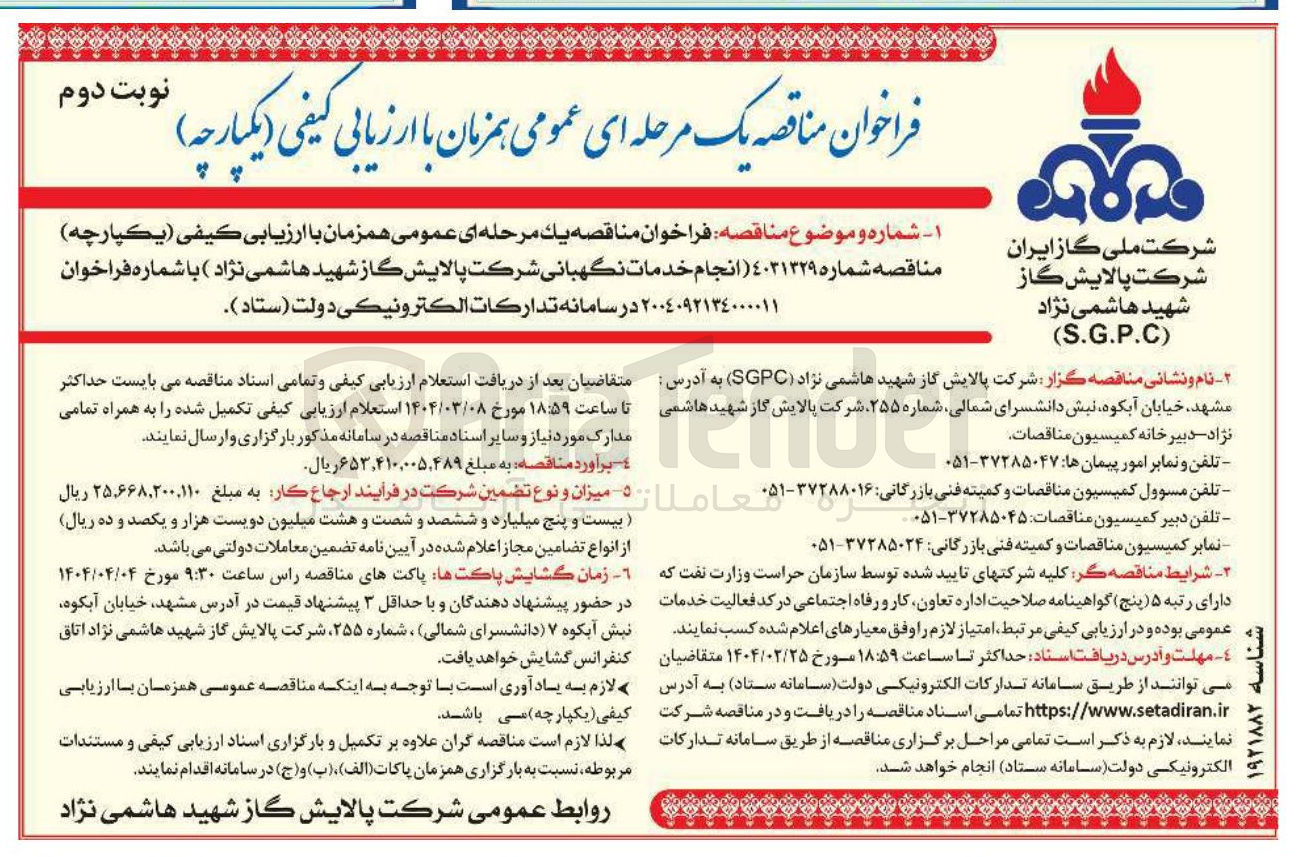 نوبت دوم
فراخوان مناقصه یک مرحله ای عمومی همزمان با ارزیابی کیفی (یکپارچه)
شرکت ملی گاز ایران
شرکت پالایش گاز
شهید هاشمی نژاد
(S.G.P.C)
۱- شماره و موضوع مناقصه: فراخوان مناقصه یك مرحله ای عمومی همزمان با ارزیابی کیفی (یکپارچه)
مناقصه شماره ٤٠٣١٣٢٩ (انجام خدمات نگهبانی شرکت پالایش گاز شهید هاشمی نژاد ) با شماره فراخوان
٢٠٠٤٠٩٢١٣٤٠٠٠٠١١ در سامانه تدارکات الکترونیکی دولت (ستاد ).
۲- نام و نشانی مناقصه گزار: شرکت پالایش گاز شهید هاشمی نژاد (SGPC) به آدرس :
مشهد، خیابان آبکوه، نبش دانشسرای شمالی، شماره ۲۵۵، شرکت پالایش گاز شهید هاشمی
نژاد–دبیر خانه کمیسیون مناقصات.
- تلفن و نمابر امور پیمان ها: ۳۷۲۸۵۰۴۷-۰۵۱
- تلفن مسوول کمیسیون مناقصات و کمیته فنی بازرگانی: ۳۷۲۸۸۰۱۶-۰۵۱
- تلفن دبیر کمیسیون مناقصات: ۳۷۲۸۵۰۴۵-۰۵۱
- نمابر کمیسیون مناقصات و کمیته فنی بازرگانی: ۳۷۲۸۵۰۲۴-۰۵۱
۳- شرایط مناقصه گر: کلیه شرکتهای تایید شده توسط سازمان حراست وزارت نفت که
دارای رتبه ۵ (پنج) گواهینامه صلاحیت اداره تعاون، کار و رفاه اجتماعی در کد فعالیت خدمات
عمومی بوده و در ارزیابی کیفی مرتبط، امتیاز لازم را وفق معیارهای اعلام شده کسب نمایند.
٤- مهلت و آدرس دریافت اسناد: حداکثر تا ساعت ۱۸:۵۹ مورخ ۱۴۰۴/۰۲/۲۵ متقاضیان
می توانند از طریق سامانه تدارکات الکترونیکی دولت(سامانه ستاد) به آدرس
https://www.setadiran.ir تمامی اسناد مناقصه را دریافت و در مناقصه شرکت
نمایند، لازم به ذکر است تمامی مراحل برگزاری مناقصه از طریق سامانه تدارکات
الکترونیکی دولت(سامانه ستاد) انجام خواهد شد.
متقاضیان بعد از دریافت استعلام ارزیابی کیفی و تمامی اسناد مناقصه می بایست حداکثر
تا ساعت ۱۸:۵۹ مورخ ۱۴۰۴/۰۳/۰۸ استعلام ارزیابی کیفی تکمیل شده را به همراه تمامی
مدارک مورد نیاز و سایر اسناد مناقصه در سامانه مذکور بارگزاری و ارسال نمایند.
٤- برآورد مناقصه: به مبلغ ۶۵۳,۴۱۰,۰۰۵,۴۸۹ ریال.
۵- میزان و نوع تضمین شرکت در فرآیند ارجاع کار: به مبلغ ۲۵,۶۶۸,۲۰۰,۱۱۰ ریال
( بیست و پنج میلیارد و ششصد و شصت و هشت میلیون دویست هزار و یکصد و ده ریال)
از انواع تضامین مجاز اعلام شده در آیین نامه تضمین معاملات دولتی می باشد.
٦- زمان گشایش پاکت ها: پاکت های مناقصه راس ساعت ۹:۳۰ مورخ ۱۴۰۴/۰۴/۰۴
در حضور پیشنهاد دهندگان و با حداقل ۳ پیشنهاد قیمت در آدرس مشهد، خیابان آبکوه،
نبش آبکوه ۷ (دانشسرای شمالی) ، شماره ۲۵۵، شرکت پالایش گاز شهید هاشمی نژاد اتاق
کنفرانس گشایش خواهد یافت.
➤لازم به یادآوری است با توجه به اینکه مناقصه عمومی همزمان با ارزیابی
کیفی(یکپارچه)می باشد.
➤لذا لازم است مناقصه گران علاوه بر تکمیل و بارگزاری اسناد ارزیابی کیفی و مستندات
مربوطه، نسبت به بارگزاری همزمان پاکات(الف)،(ب)و(ج) در سامانه اقدام نمایند.
روابط عمومی شرکت پالایش گاز شهید هاشمی نژاد
شناسه ۱۹۲۱۸۸۲
AriaTender